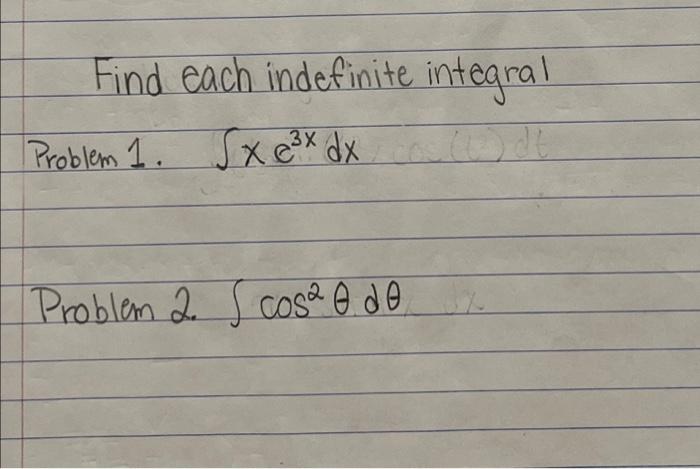 Find each indefinite integral
Problem 1. ∫x e³ˣ dx
Problem 2. ∫ cos² θ dθ